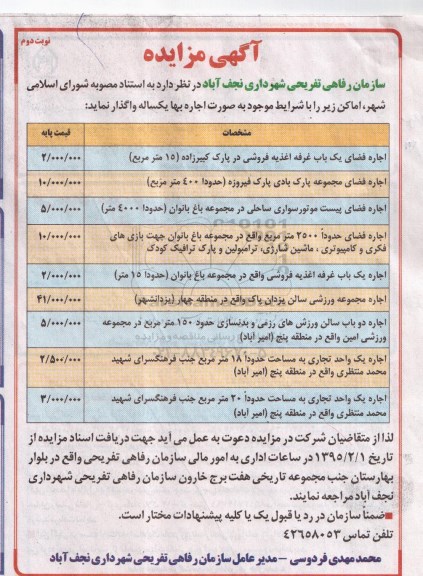 نوبت دوم
آگهی مزایده
سازمان رفاهی تفریحی شهرداری نجف آباد در نظر دارد به استناد مصوبه شورای اسلامی
شهر، اماکن زیر را با شرایط موجود به صورت اجاره بها یکساله واگذار نماید:
مشخصات قیمت پایه
اجاره فضای یک باب غرفه اغذیه فروشی در پارک کبیرزاده (۱۵ متر مربع) ۲/۰۰۰/۰۰۰
اجاره فضای مجموعه پارک بادی پارک فیروزه (حدودا ۴۰۰ متر مربع) ۱۰/۰۰۰/۰۰۰
اجاره فضای پیست موتورسواری ساحلی در مجموعه باغ بانوان (حدودا ۴۰۰۰ متر) ۵/۰۰۰/۰۰۰
اجاره فضای حدوداً ۲۵۰۰ متر مربع واقع در مجموعه باغ بانوان جهت بازی های ۱۰/۰۰۰/۰۰۰
فکری و کامپیوتری ، ماشین شارژی، ترامبولین و پارک ترافیک کودک
اجاره یک باب غرفه اغذیه فروشی واقع در مجموعه باغ بانوان (حدودا ۱۵ متر) ۲/۰۰۰/۰۰۰
اجاره مجموعه ورزشی سالن یزدان پاک واقع در منطقه چهار (یزدانشهر) ۴۱/۰۰۰/۰۰۰
اجاره دو باب سالن ورزش های رزمی و بدنسازی حدود ۱۵۰ متر مربع در مجموعه ۵/۰۰۰/۰۰۰
ورزشی امین واقع در منطقه پنج (امیر آباد)
اجاره یک واحد تجاری به مساحت حدوداً ۱۸ متر مربع جنب فرهنگسرای شهید ۲/۵۰۰/۰۰۰
محمد منتظری واقع در منطقه پنج (امیر آباد)
اجاره یک واحد تجاری به مساحت حدوداً ۲۰ متر مربع جنب فرهنگسرای شهید ۳/۰۰۰/۰۰۰
محمد منتظری واقع در منطقه پنج (امیر آباد)
لذا از متقاضیان شرکت در مزایده دعوت به عمل می آید جهت دریافت اسناد مزایده از
تاریخ ۱۳۹۵/۲/۱ در ساعات اداری به امور مالی سازمان رفاهی تفریحی واقع در بلوار
بهارستان جنب مجموعه تاریخی هفت برج خارون سازمان رفاهی تفریحی شهرداری
نجف آباد مراجعه نمایند.
■ضمنا سازمان در رد یا قبول یک یا کلیه پیشنهادات مختار است.
تلفن تماس ۴۲۶۵۸۰۵۳
محمد مهدی فردوسی - مدیر عامل سازمان رفاهی تفریحی شهرداری نجف آباد